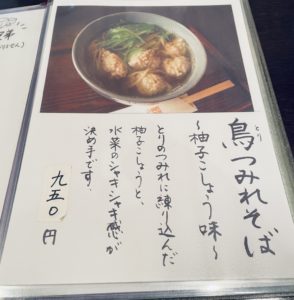 鳥つみれそば
とり
～柚子こしょう味～
とりのつみれに練り込んだ
柚子こしょうと、
水菜のシャキシャキ感が
決め手です。
九五〇円